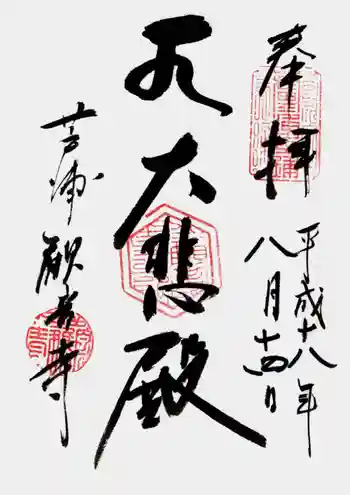 奉拝
平成十八年
八月十四日
大悲殿
芦浦観音寺